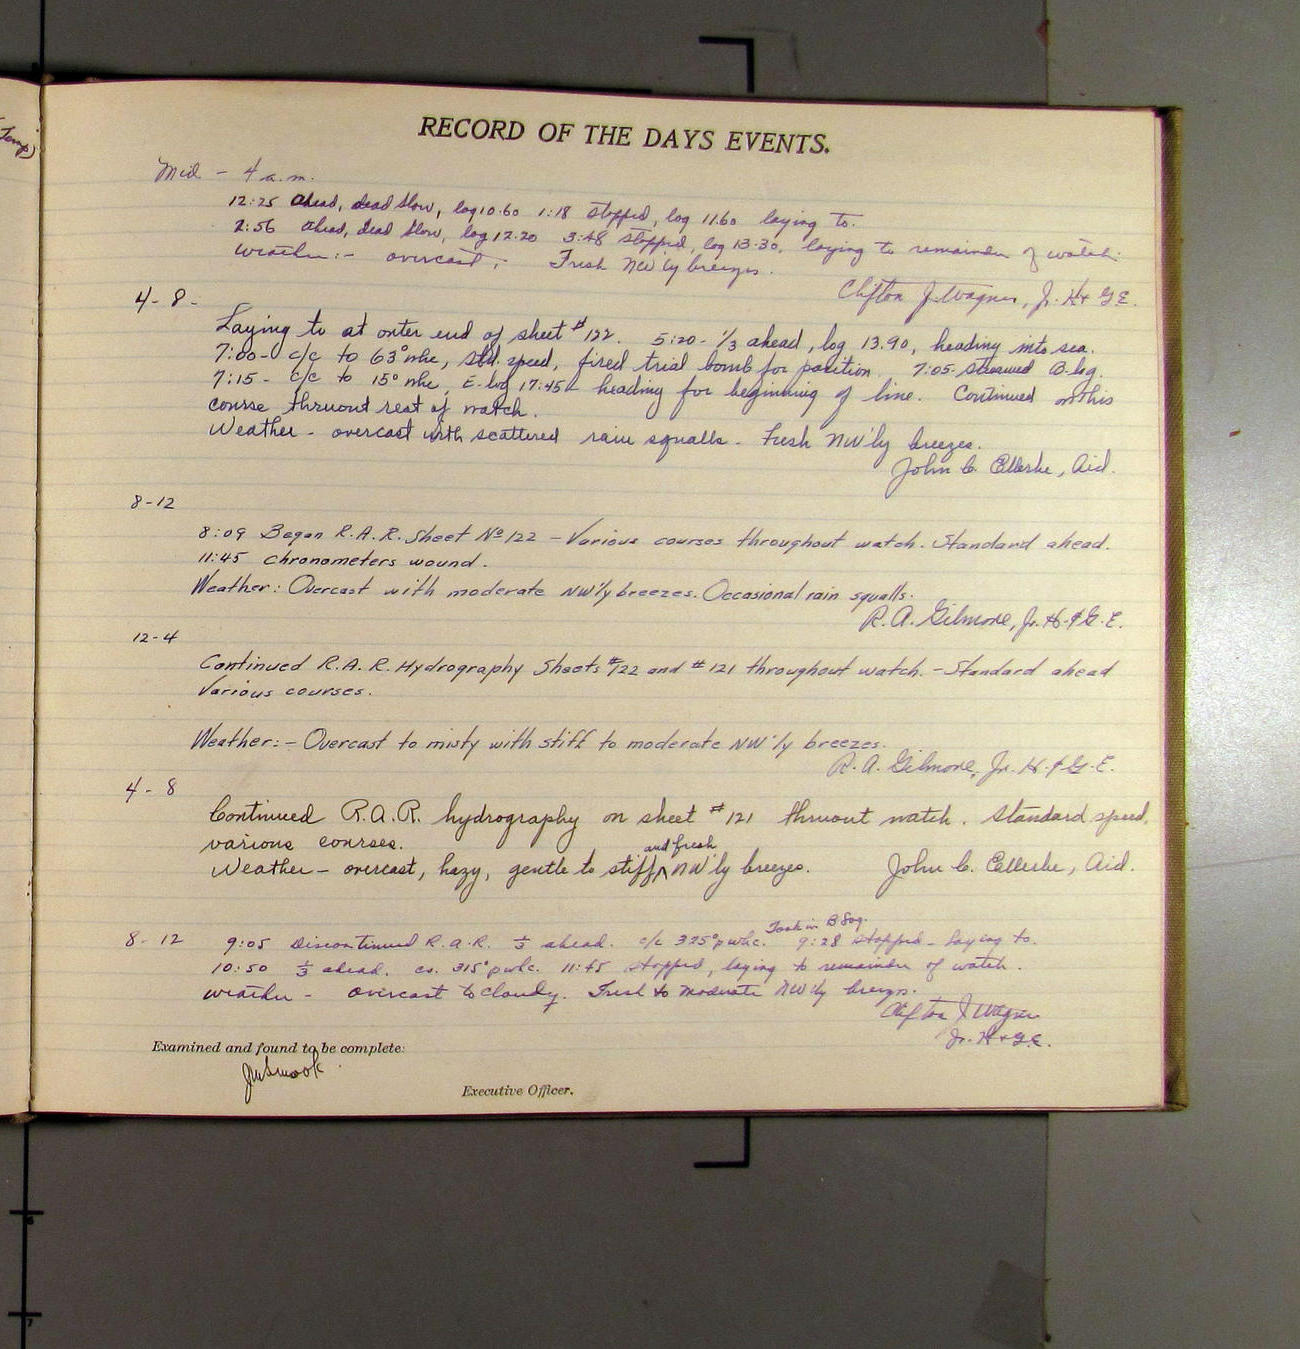 RECORD OF THE DAYS EVENTS.
Mid - 4 a.m.
12:25 ahead, dead slow, log 10.60 1:18 stopped, log 11.60 laying to.
2:56 ahead, dead slow, log 12.20 3:48 stopped, log 13.30, laying to remainder of watch.
Weather:- overcast, Fresh NW'ly breezes.
Clifton J. Wagner, Jr. H + G E.
4-8-
Laying to at outer end of sheet #122. 5:20- 1/3 ahead, log 13.90, heading into sea.
7:00- c/c to 63° whc, std. speed, fired trial bomb for position. 7:05- streamed B-log.
7:15- c/c to 15° whc, E-log 17.45- heading for beginning of line. Continued on this
course thruout rest of watch.
Weather - overcast with scattered rain squalls - fresh NW'ly breezes.
John C. Ellerbe, Aid.
8-12
8:09 Began R.A.R. Sheet No 122 - Various courses throughout watch. Standard ahead.
11:45 chronometers wound.
Weather: Overcast with moderate NW'ly breezes. Occasional rain squalls.
R.A. Gilmore, Jr. H. & G. E.
12-4
Continued R.A.R. Hydrography Sheets #122 and #121 throughout watch. - Standard ahead
Various courses.
Weather:- Overcast to misty with stiff to moderate NW'ly breezes.
R.A. Gilmore, Jr. H. & G. E.
4-8
Continued R.A.R. hydrography on sheet #121 thruout watch. Standard speed,
various courses.
and fresh
Weather - overcast, hazy, gentle to stiff ^ NW'ly breezes. John C. Ellerbe, Aid.
Took in B log.
8-12 9:05 Discontinued R.A.R. 1/3 ahead. c/c 325° pwhc. 9:28 stopped - laying to.
10:50 1/3 ahead. cs. 315° pwhc. 11:45 stopped, laying to remainder of watch.
Weather - overcast to cloudy. Fresh to moderate NW'ly breezes.
Clifton J Wagner
Jr. H + G.E.
Examined and found to be complete:
Executive Officer.